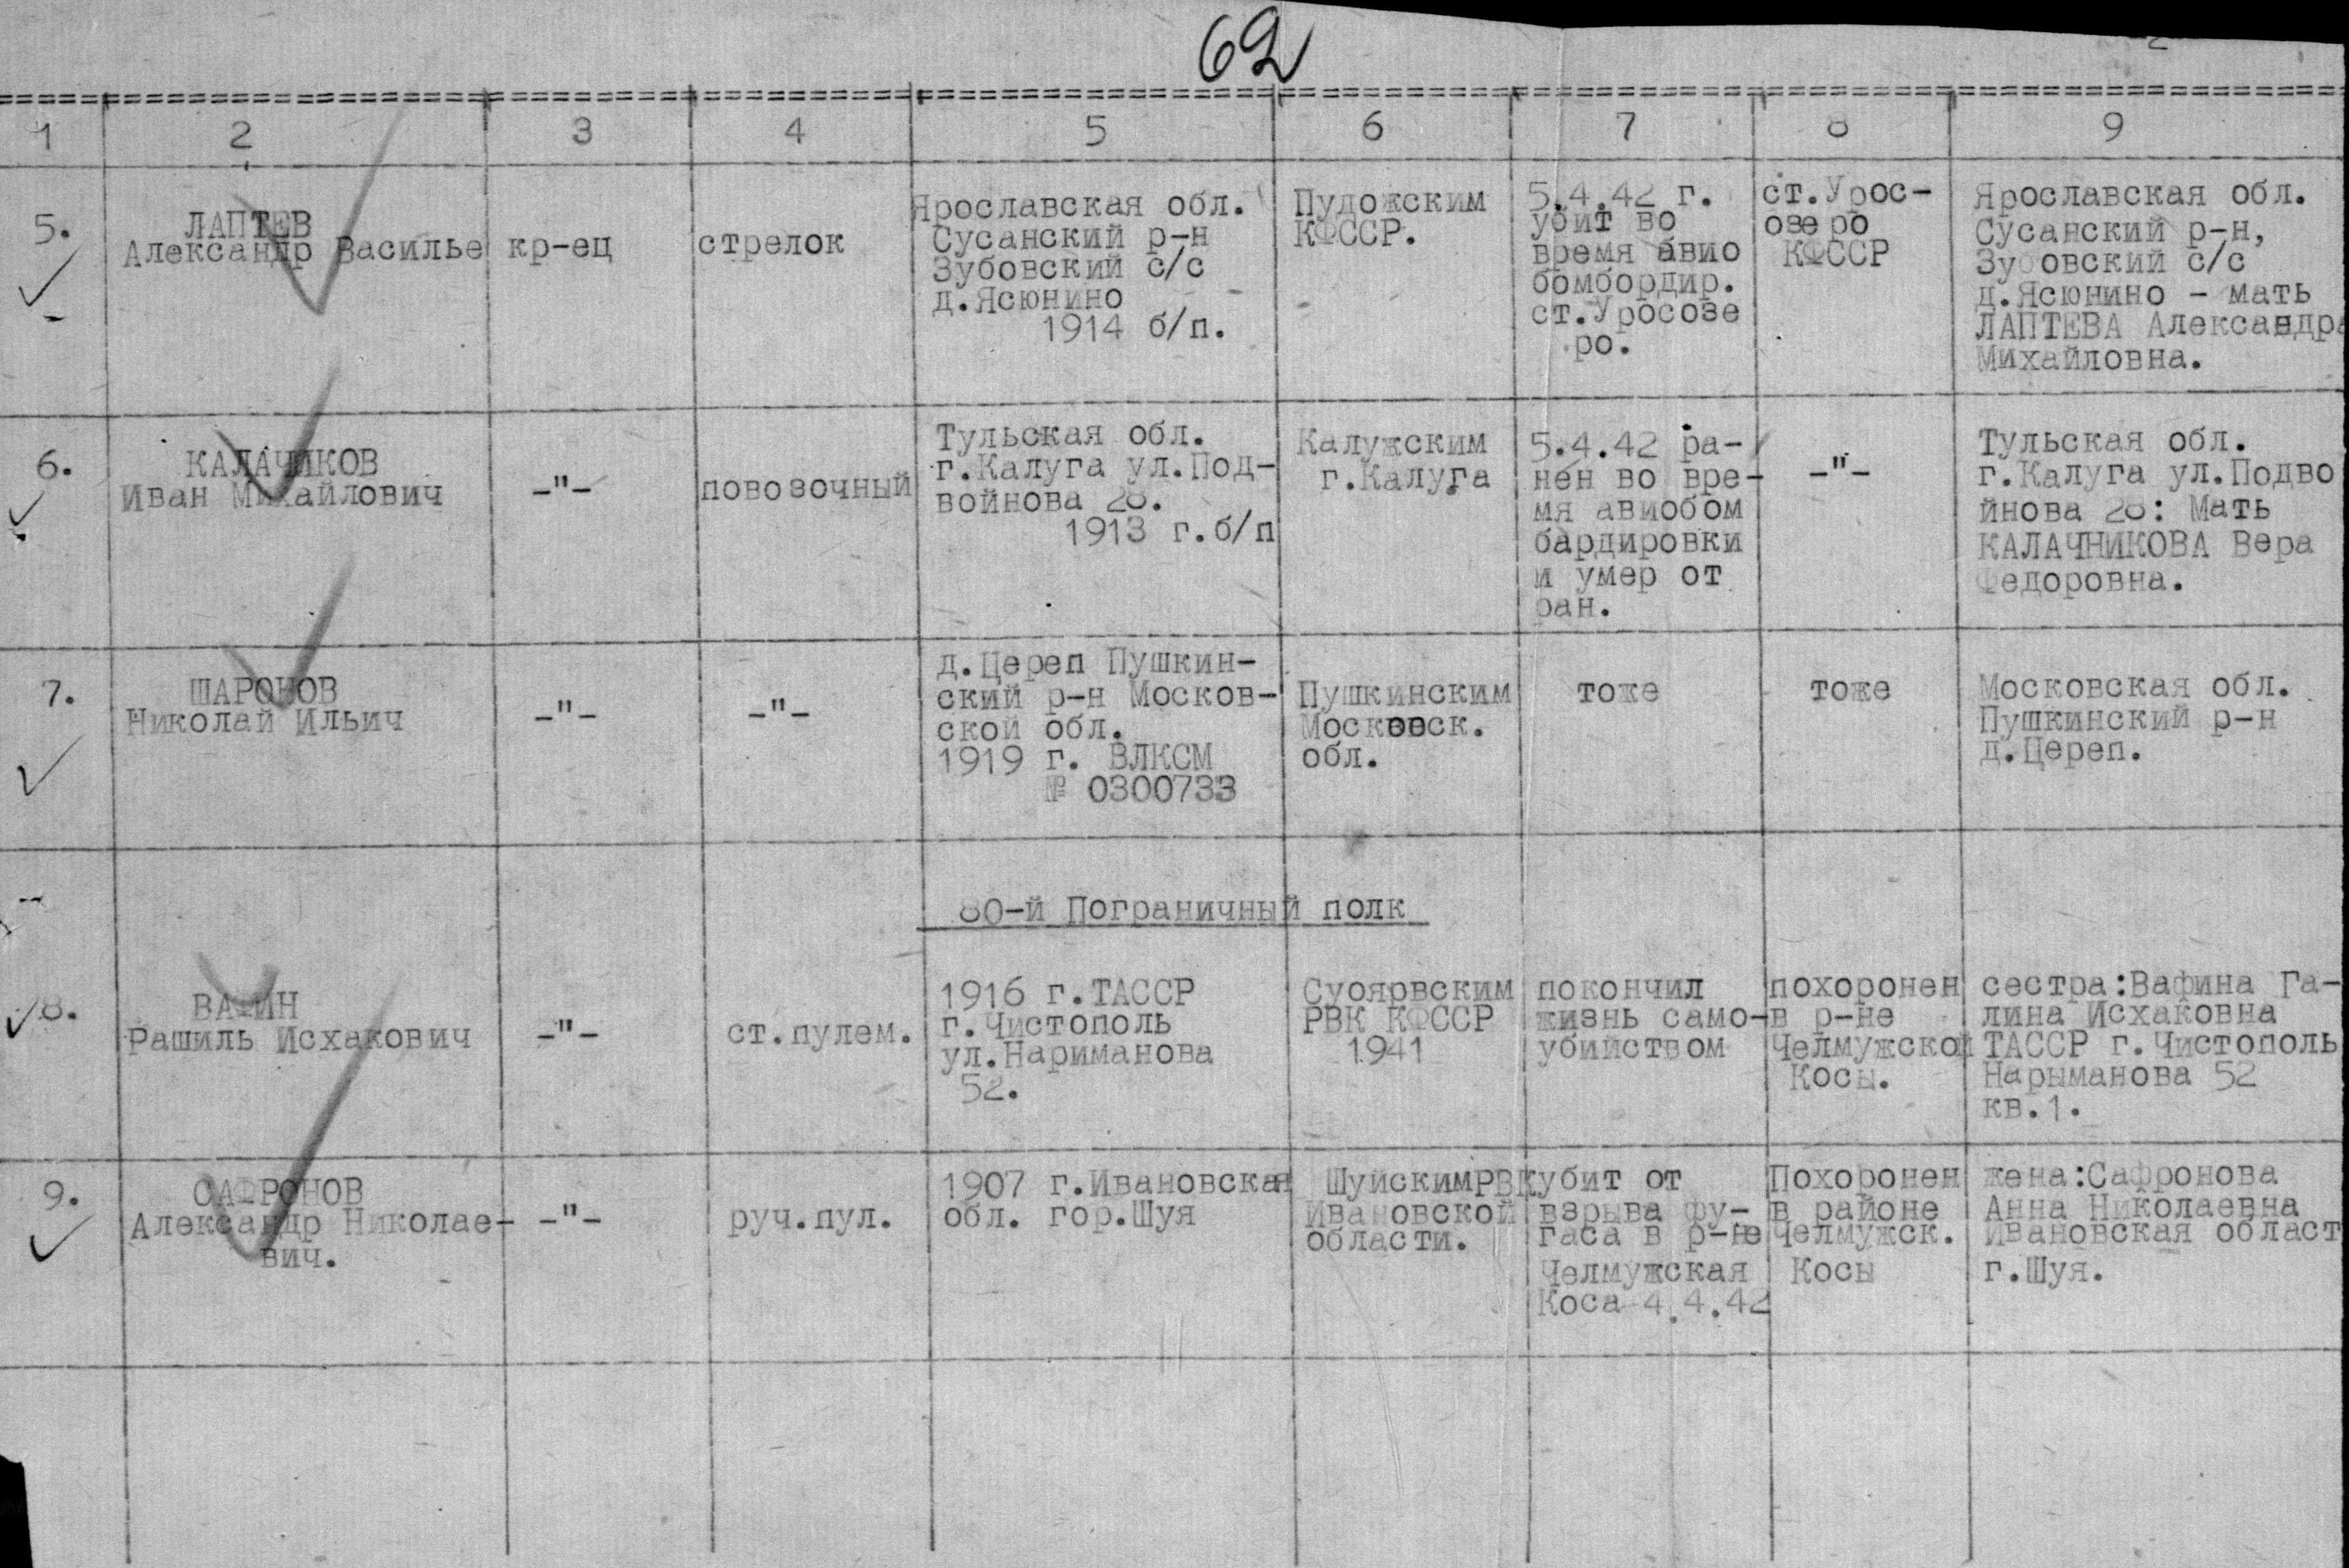 62
1 2 3 4 5 6 7 8 9
5.
ЛАПТЕВ
Александр Василье
кр-ец
стрелок
Ярославская обл.
Сусанский р-н
Зубовский с/с
д.Ясюнино
1914 б/п.
Пудожским
КФССР.
5.4.42 г.
убит во
время авио
бомбордир.
ст.Уросозе
ро.
ст.Урос-
озеро
КФССР
Ярославская обл.
Сусанский р-н,
Зубовский с/с
д.Ясюнино - мать
ЛАПТЕВА Александра
Михайловна.
6.
КАЛАЧИКОВ
Иван Михайлович
-"-
повозочный
Тульская обл.
г.Калуга ул.Под-
войнова 28.
1913 г.б/п
Калужским
г.Калуга
5.4.42 ра-
нен во вре-
мя авиобом
бардировки
и умер от
ран.
-"-
Тульская обл.
г.Калуга ул.Подво
йнова 28: Мать
КАЛАЧНИКОВА Вера
Федоровна.
7.
ШАРОНОВ
Николай Ильич
-"-
-"-
д.Цереп Пушкин-
ский р-н Москов-
ской обл.
1919 г. ВЛКСМ
№ 0300733
Пушкинским
Московск.
обл.
тоже
тоже
Московская обл.
Пушкинский р-н
д.Цереп.
80-й Пограничный полк
8.
ВАФИН
Рашиль Исхакович
-"-
ст.пулем.
1916 г.ТАССР
г.Чистополь
ул.Нариманова
52.
Суоярвским
РВК КФССР
1941
покончил
жизнь само-
убийством
похоронен
в р-не
Челмужской
Косы.
сестра:Вафина Га-
лина Исхаковна
ТАССР г.Чистополь
Нарыманова 52
кв.1.
9.
САФРОНОВ
Александр Николае-
вич.
-"-
руч.пул.
1907 г.Ивановская
обл. гор.Шуя
ШуйскимРВК
Ивановской
области.
убит от
взрыва фу-
гаса в р-не
Челмужская
Коса 4.4.42
Похоронен
в районе
Челмужск.
Косы
жена:Сафронова
Анна Николаевна
Ивановская област
г.Шуя.